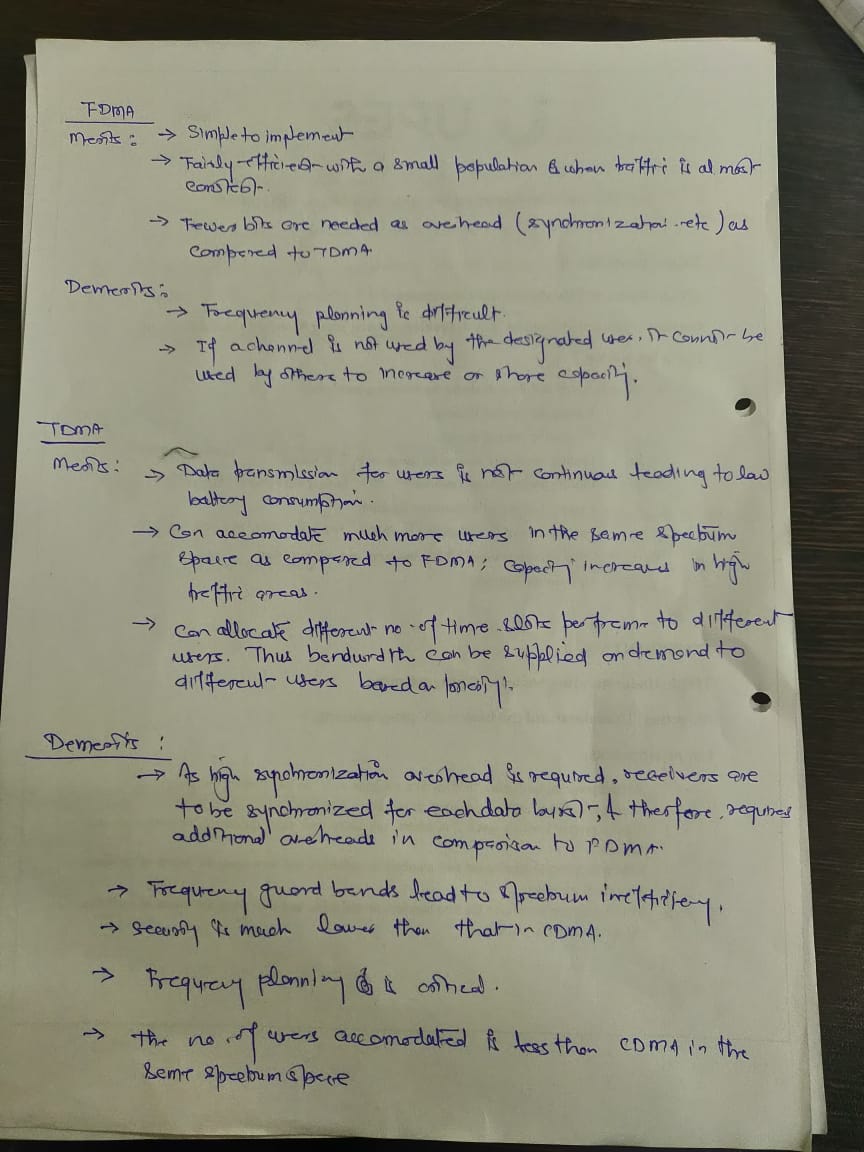 FDMA
Merits : → Simple to implement
→ Fairly efficient with a small population & when traffic is almost
constant.
→ Fewer bits are needed as overhead (synchronization etc) as
compared to TDMA
Demerits :
→ Frequency planning is difficult.
→ If a channel is not used by the designated user, it cannot be
used by others to increase or share capacity.
TDMA
Merits : → Data transmission for users is not continuous leading to low
battery consumption.
→ Can accomodate much more users in the same spectrum
space as compared to FDMA; capacity increases in high
traffic areas.
→ Can allocate different no. of time slots per frame to different
users. Thus bandwidth can be supplied on demand to
different users based on
Demerits :
→ As high synchronization overhead is required, receivers are
to be synchronized for each data burst, & therefore, requires
additional overheads in comparison to FDMA.
→ Frequency guard bands lead to spectrum inefficiency.
→ Security is much lower than that in CDMA.
→ Frequency planning is critical.
→ The no. of users accomodated is less than CDMA in the
same spectrum space